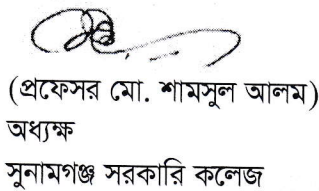 (প্রফেসর মো. শামসুল আলম)
অধ্যক্ষ
সুনামগঞ্জ সরকারি কলেজ